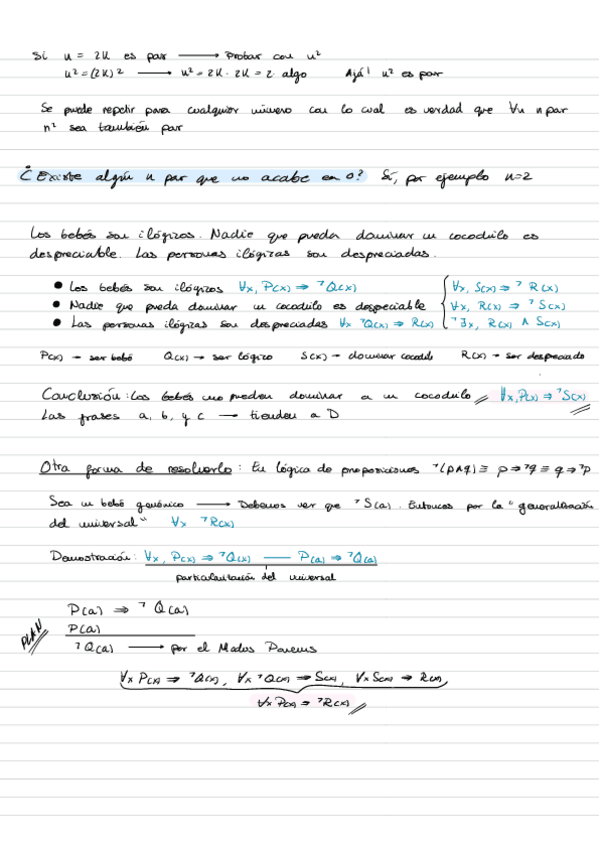 Si n = 2k es par ⟶ Probar con n²
n² = (2k)² ⟶ n² = 2k · 2k = 2 · algo Ajá! n² es par
Se puede repetir para cualquier número con lo cual es verdad que ∀n n par
n² sea también par
¿Existe algún n par que no acabe en 0? Sí, por ejemplo n=2
Los bebés son ilógicos. Nadie que pueda dominar un cocodrilo es
despreciable. Las personas ilógicas son despreciadas.
• Los bebés son ilógicos ∀x, P(x) ⇒ ¬Q(x) { ∀x, S(x) ⇒ ¬R(x)
• Nadie que pueda dominar un cocodrilo es despreciable { ∀x, R(x) ⇒ ¬S(x)
• Las personas ilógicas son despreciadas ∀x ¬Q(x) ⇒ R(x) { ¬∃x, R(x) ∧ S(x)
P(x) → ser bebé Q(x) → ser lógico S(x) → dominar cocodrilo R(x) → ser despreciado
Conclusión: Los bebés no pueden dominar a un cocodrilo ∀x, P(x) ⇒ ¬S(x)
Las frases a, b, y c ⟶ tienden a D
Otra forma de resolverlo: En lógica de proposiciones ¬(p∧q) ≡ p⇒¬q ≡ q⇒¬p
Sea un bebé genérico ⟶ Debemos ver que ¬S(a). Entonces por la "generalización
del universal" ∀x ¬R(x)
Demostración: ∀x, P(x) ⇒ ¬Q(x) — P(a) ⇒ ¬Q(a)
particularización del universal
P(a) ⇒ ¬Q(a)
PLAN P(a)
¬Q(a) ⟶ por el Modus Ponens
∀x P(x) ⇒ ¬Q(x), ∀x ¬Q(x) ⇒ S(x), ∀x S(x) ⇒ R(x)
∀x P(x) ⇒ ¬R(x)